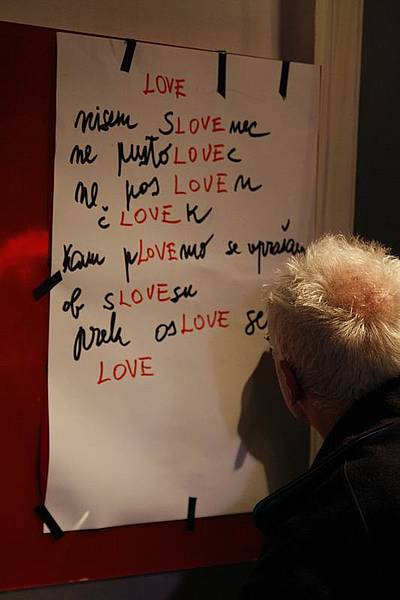 LOVE
nisem SLOVEnec
ne pustoLOVEc
ne posLOVEn
čLOVEK
Kam pLOVEmo se vprašam
ob sLOVEsu
prek osLOVE
LOVE